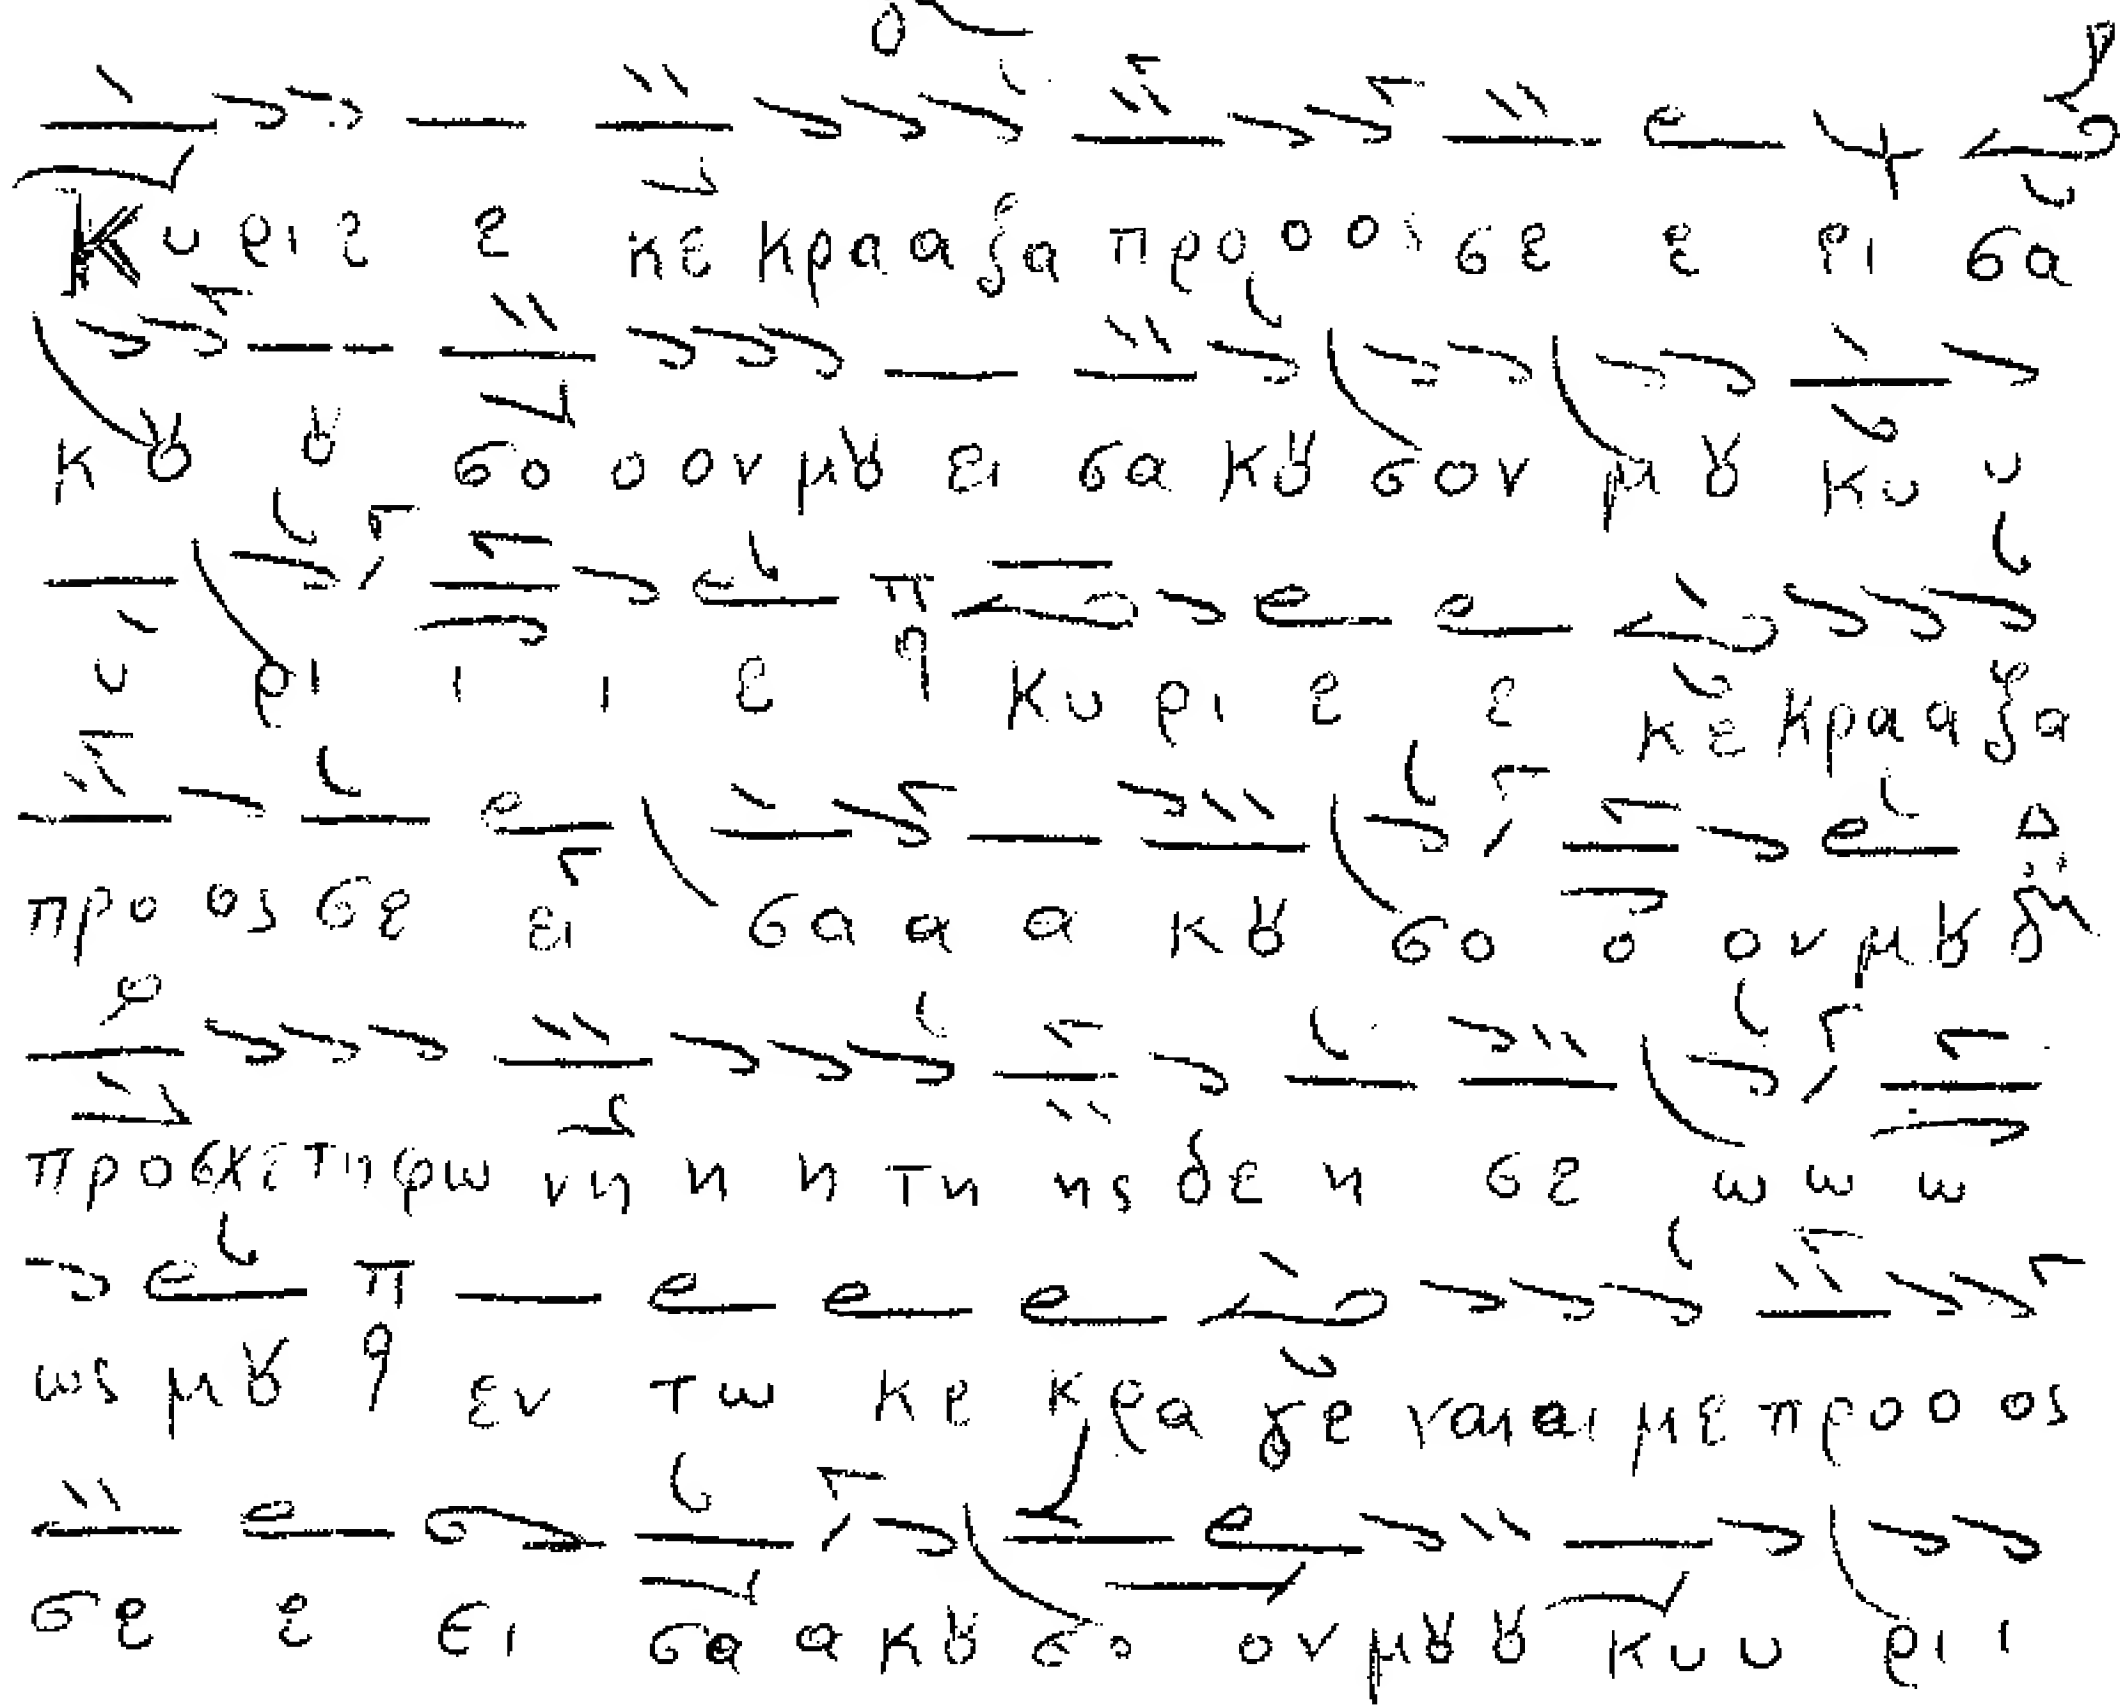 Κυ ρι ε ε κε κρα α ξα προ ο ο σε ε ει σα
κȣ ȣ σο ο ον μȣ ει σα κȣ σον μȣ Κυ υ
υ ρι ι ι ε π q Κυ ρι ε ε κε κρα α ξα
προ ος σε ει σα α α κȣ σο ο ον μȣ Δ
προσχε τη φω νη η η τη ης δε η σε ω ω ω
ως μȣ π q εν τω κε κρα γε ναι αι με προ ο ος
σε ε ει σα α κȣ σο ον μȣ ȣ Κυ υ ρι ι